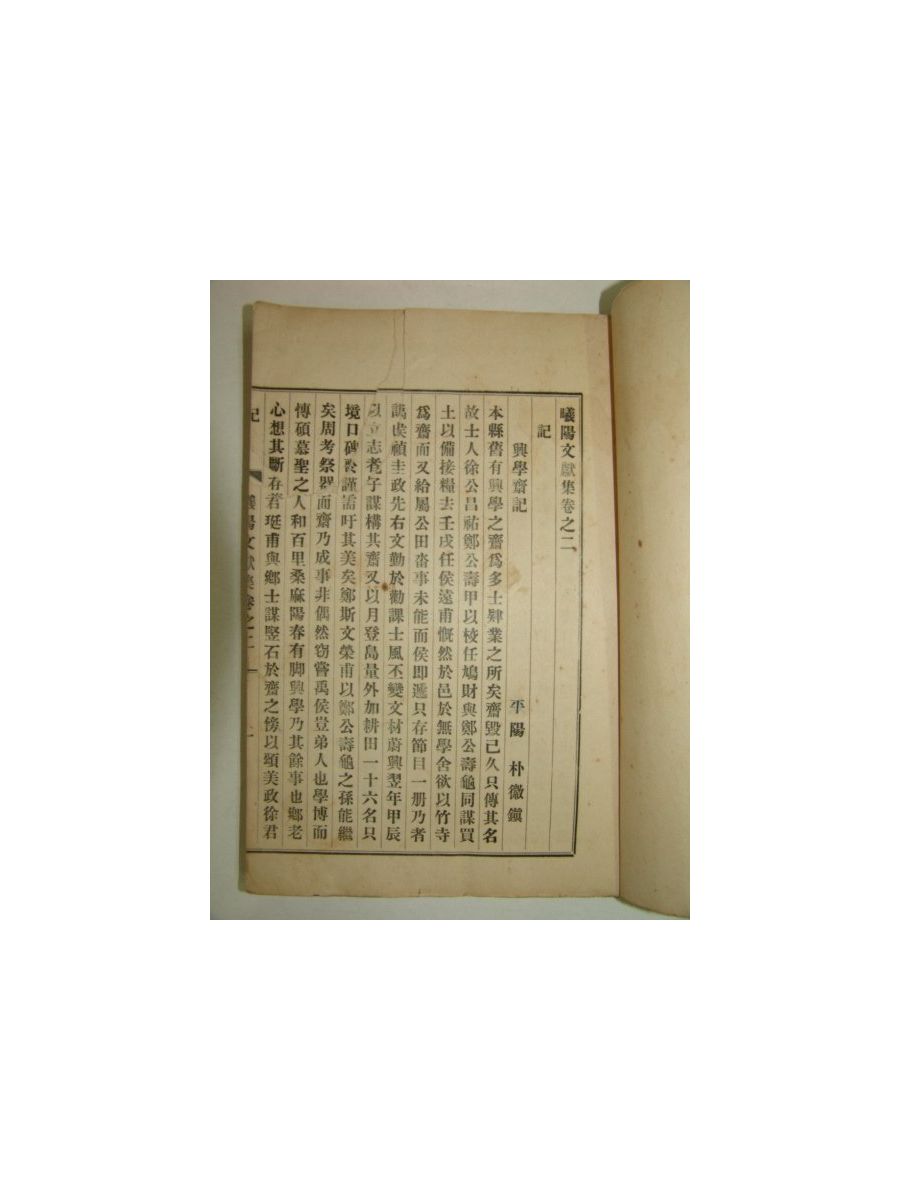 曦陽文獻集卷之二
記
興學齋記 平陽 朴徵鎭
本縣舊有興學之齋爲多士肄業之所矣齋毀已久只傳其名
故士人徐公昌祐鄭公壽甲以校任鳩財與鄭公壽龜同謀買
土以備接糧去壬戌任侯遠甫慨然於邑於無學舍欲以竹寺
爲齋而又給屬公田畓事未能而侯即遞只存節目一册乃者
禹侯禎圭政先右文勤於勸課士風丕變文材蔚興翌年甲辰
立志者子謀構其齋又以月登島量外加耕田一十六名只
境口碑謹吁其美矣鄭斯文榮甫以鄭公壽龜之孫能繼
矣周考祭器而齋乃成事非偶然窃嘗禹侯豈弟人也學博而
傳碩慕聖之人和百里桑麻陽春有脚興學乃其餘事也鄕老
心想其斷存君珽甫與鄕士謀竪石於齋之傍以頌美政徐君
記 曦陽文獻集卷之二 一